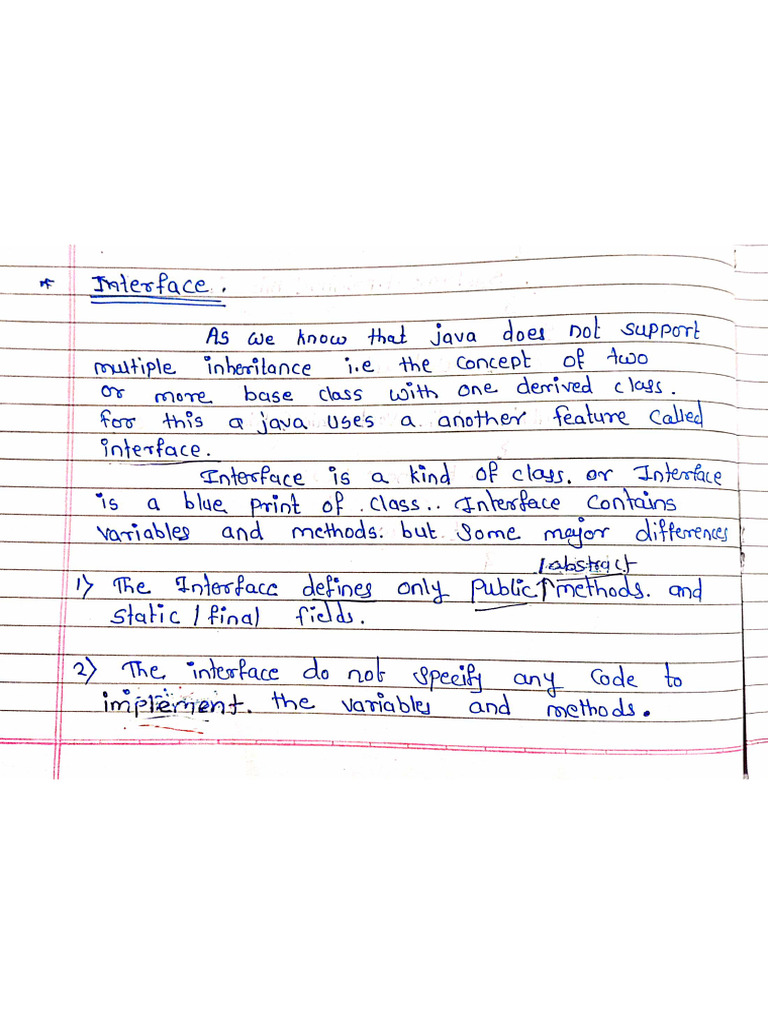 * Interface.
As we know that java does not support
multiple inheritance i.e the concept of two
or more base class with one derived class.
for this a java uses a another feature called
interface.
Interface is a kind of class. or Interface
is a blue print of class.. Interface contains
variables and methods. but some major differences
/abstract
1) The Interface defines only public↑methods. and
static / final fields.
2) The interface do not specify any code to
implement. the variables and methods.